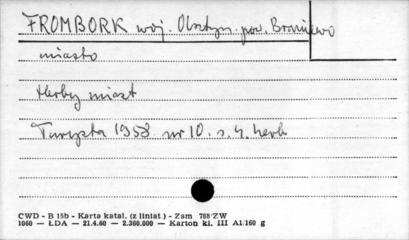 FROMBORK woj. Olsztyn. pow. Braniewo
miasto
Herby miast
Turysta 1958 nr 10. s. 4. herb
CWD - B 15b - Karta katal. (z liniat.) - Zam 788/ZW
1060 — ŁDA — 21.4.60 — 2.360.000 — Karton kl. III A1/160 g